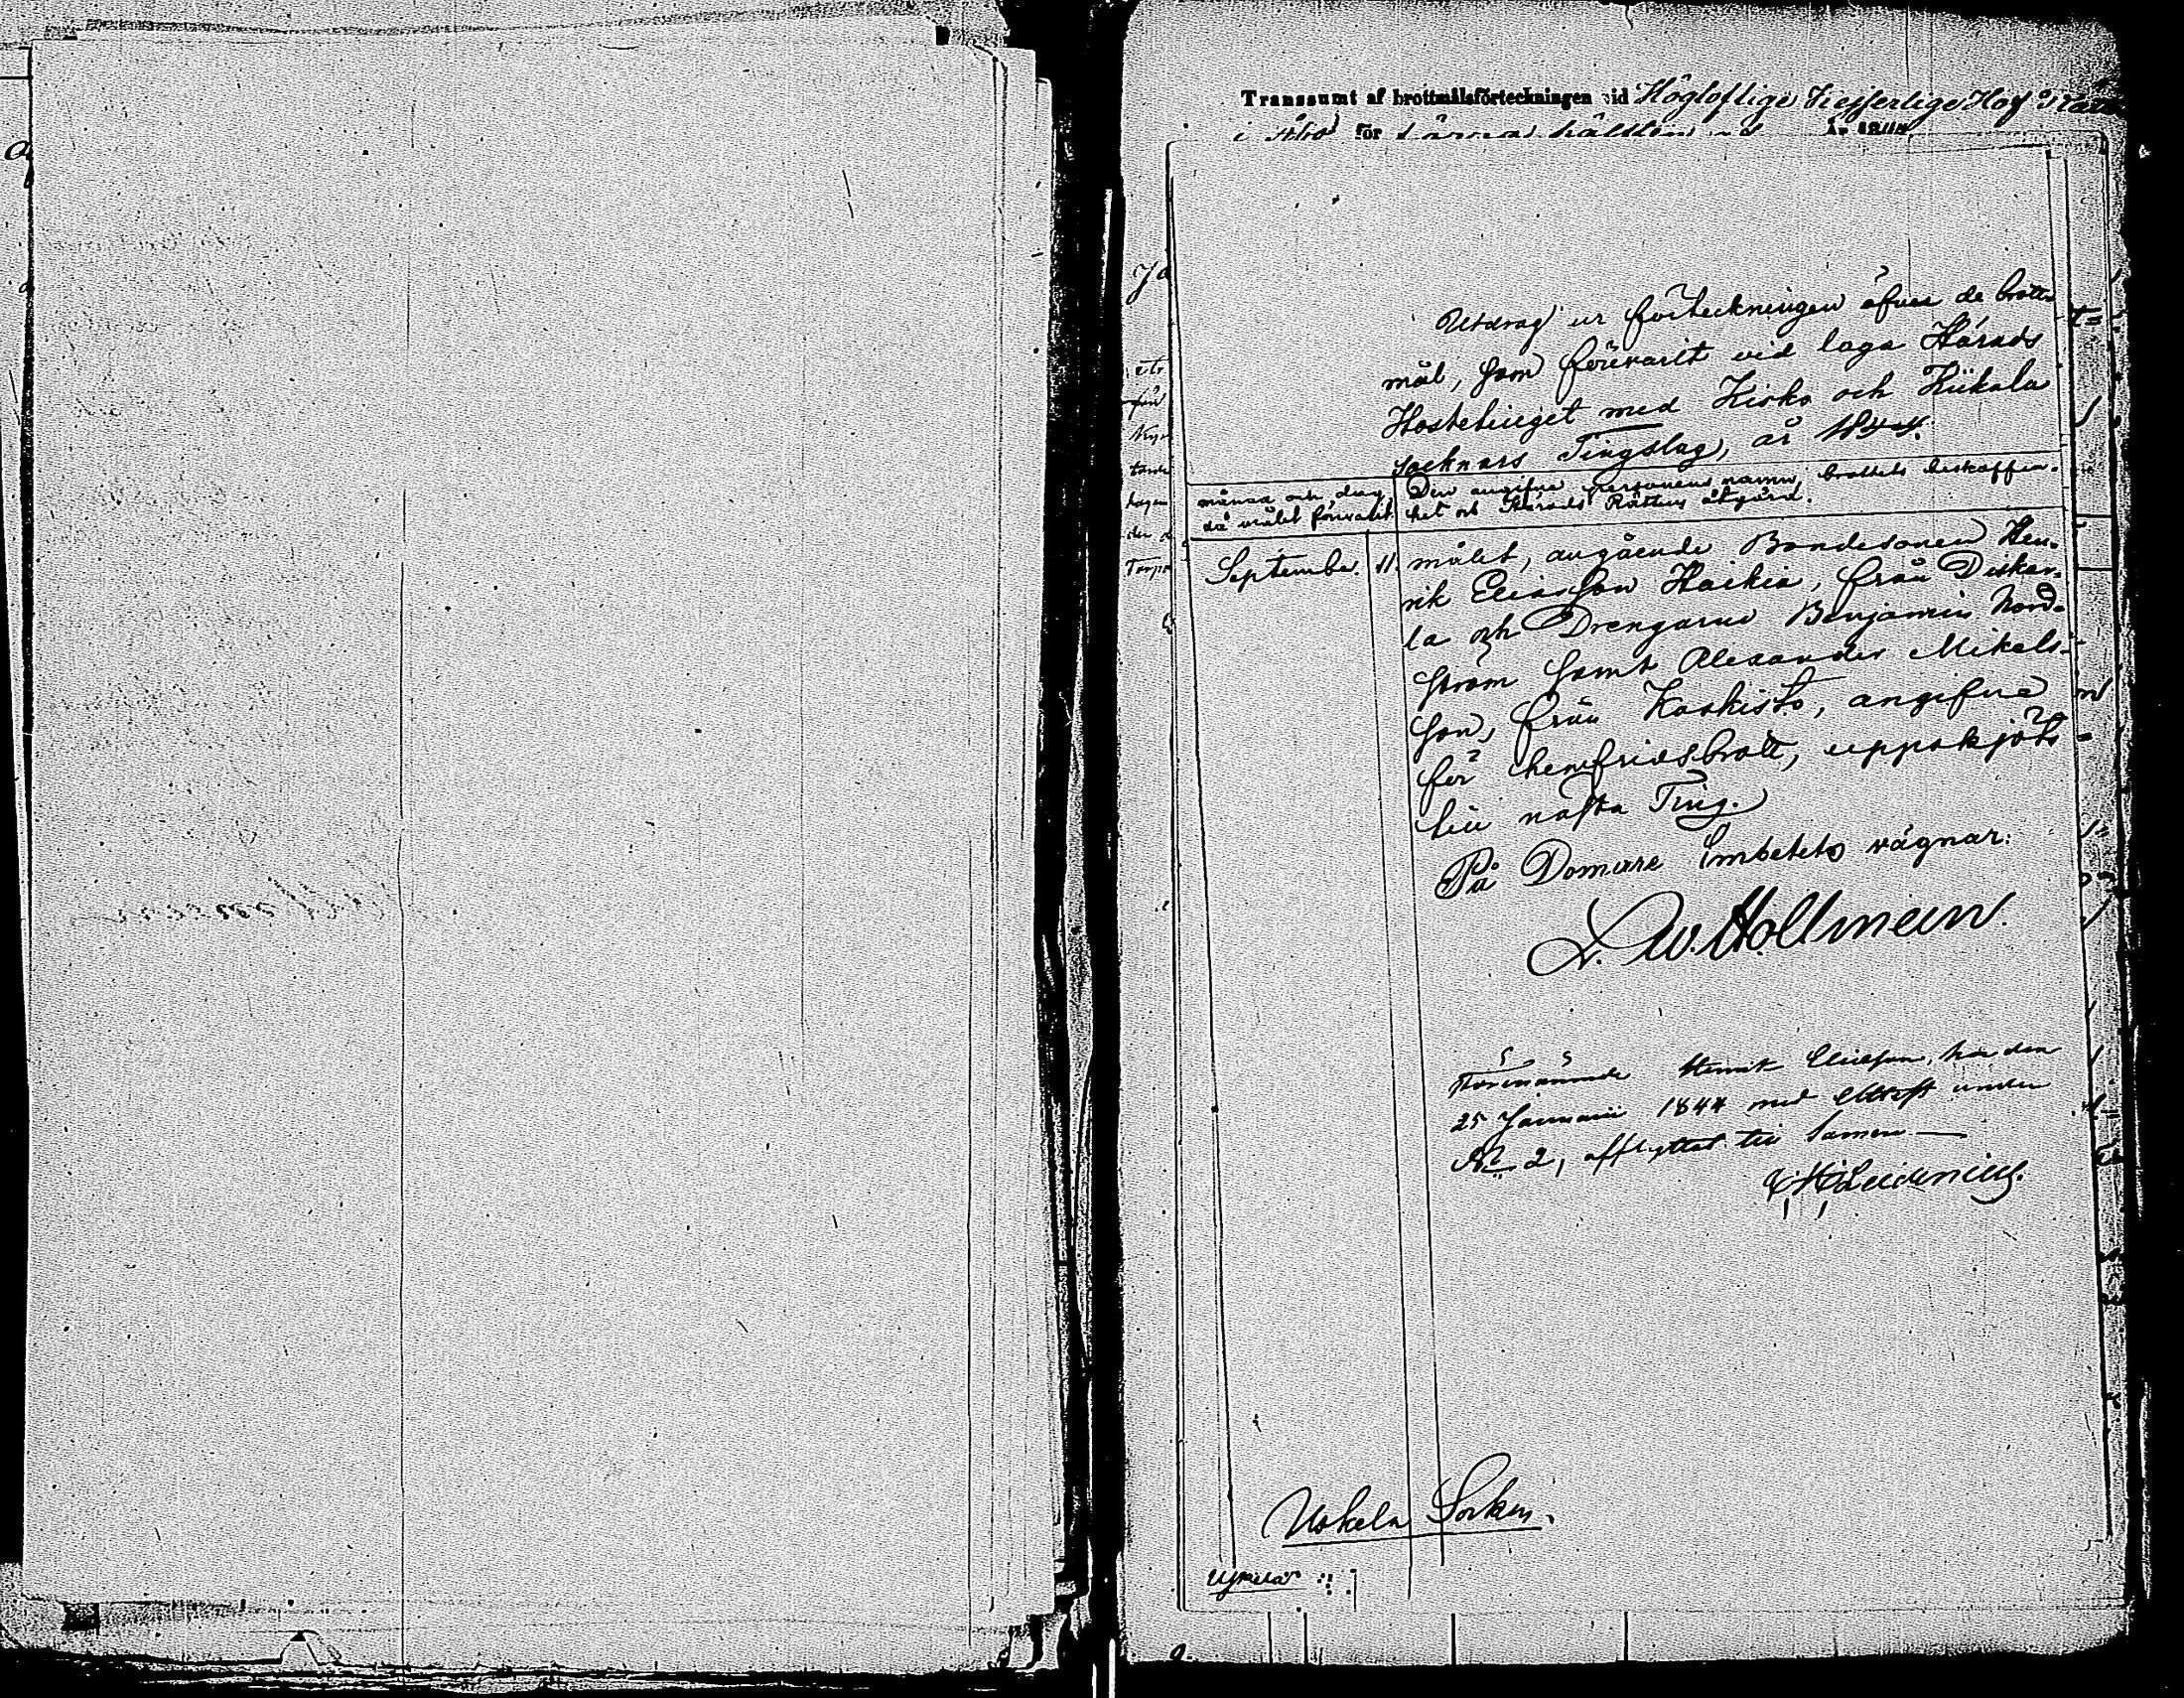 Transsumt af brottmålsförteckningen vid Högloflige Kejserlige Hof Rätten
i Åbo för Läma hälften ad År 1844
Utdrag ur förteckningen öfver de brott-
mål, som förevarit vid laga Härads
Höstetinget med Kisko och Kiikala
socknars Tingslag, år 1844.
månad och dag, Den angifna personens namn, brottets beskaffen-
då målet förevarit. het och Härads Rättens åtgärd.
September. 11. målet, angående Bondesonen Hen-
rik Eliasson Haikia, från Diskar-
la och Drengarne Benjamin Nord-
ström samt Alexander Mikels-
son, från Koskisto, angifne
för hemfridsbrott, uppskjöts
till nästa Ting.
På Domare Embetets vägnar:
L. W. Hollmeen.
Förenämnde Henrik Eliasson, har den
25 Januarii 1844 med Attest under
No 2, afflyttat till Somero
Uskela Socken.